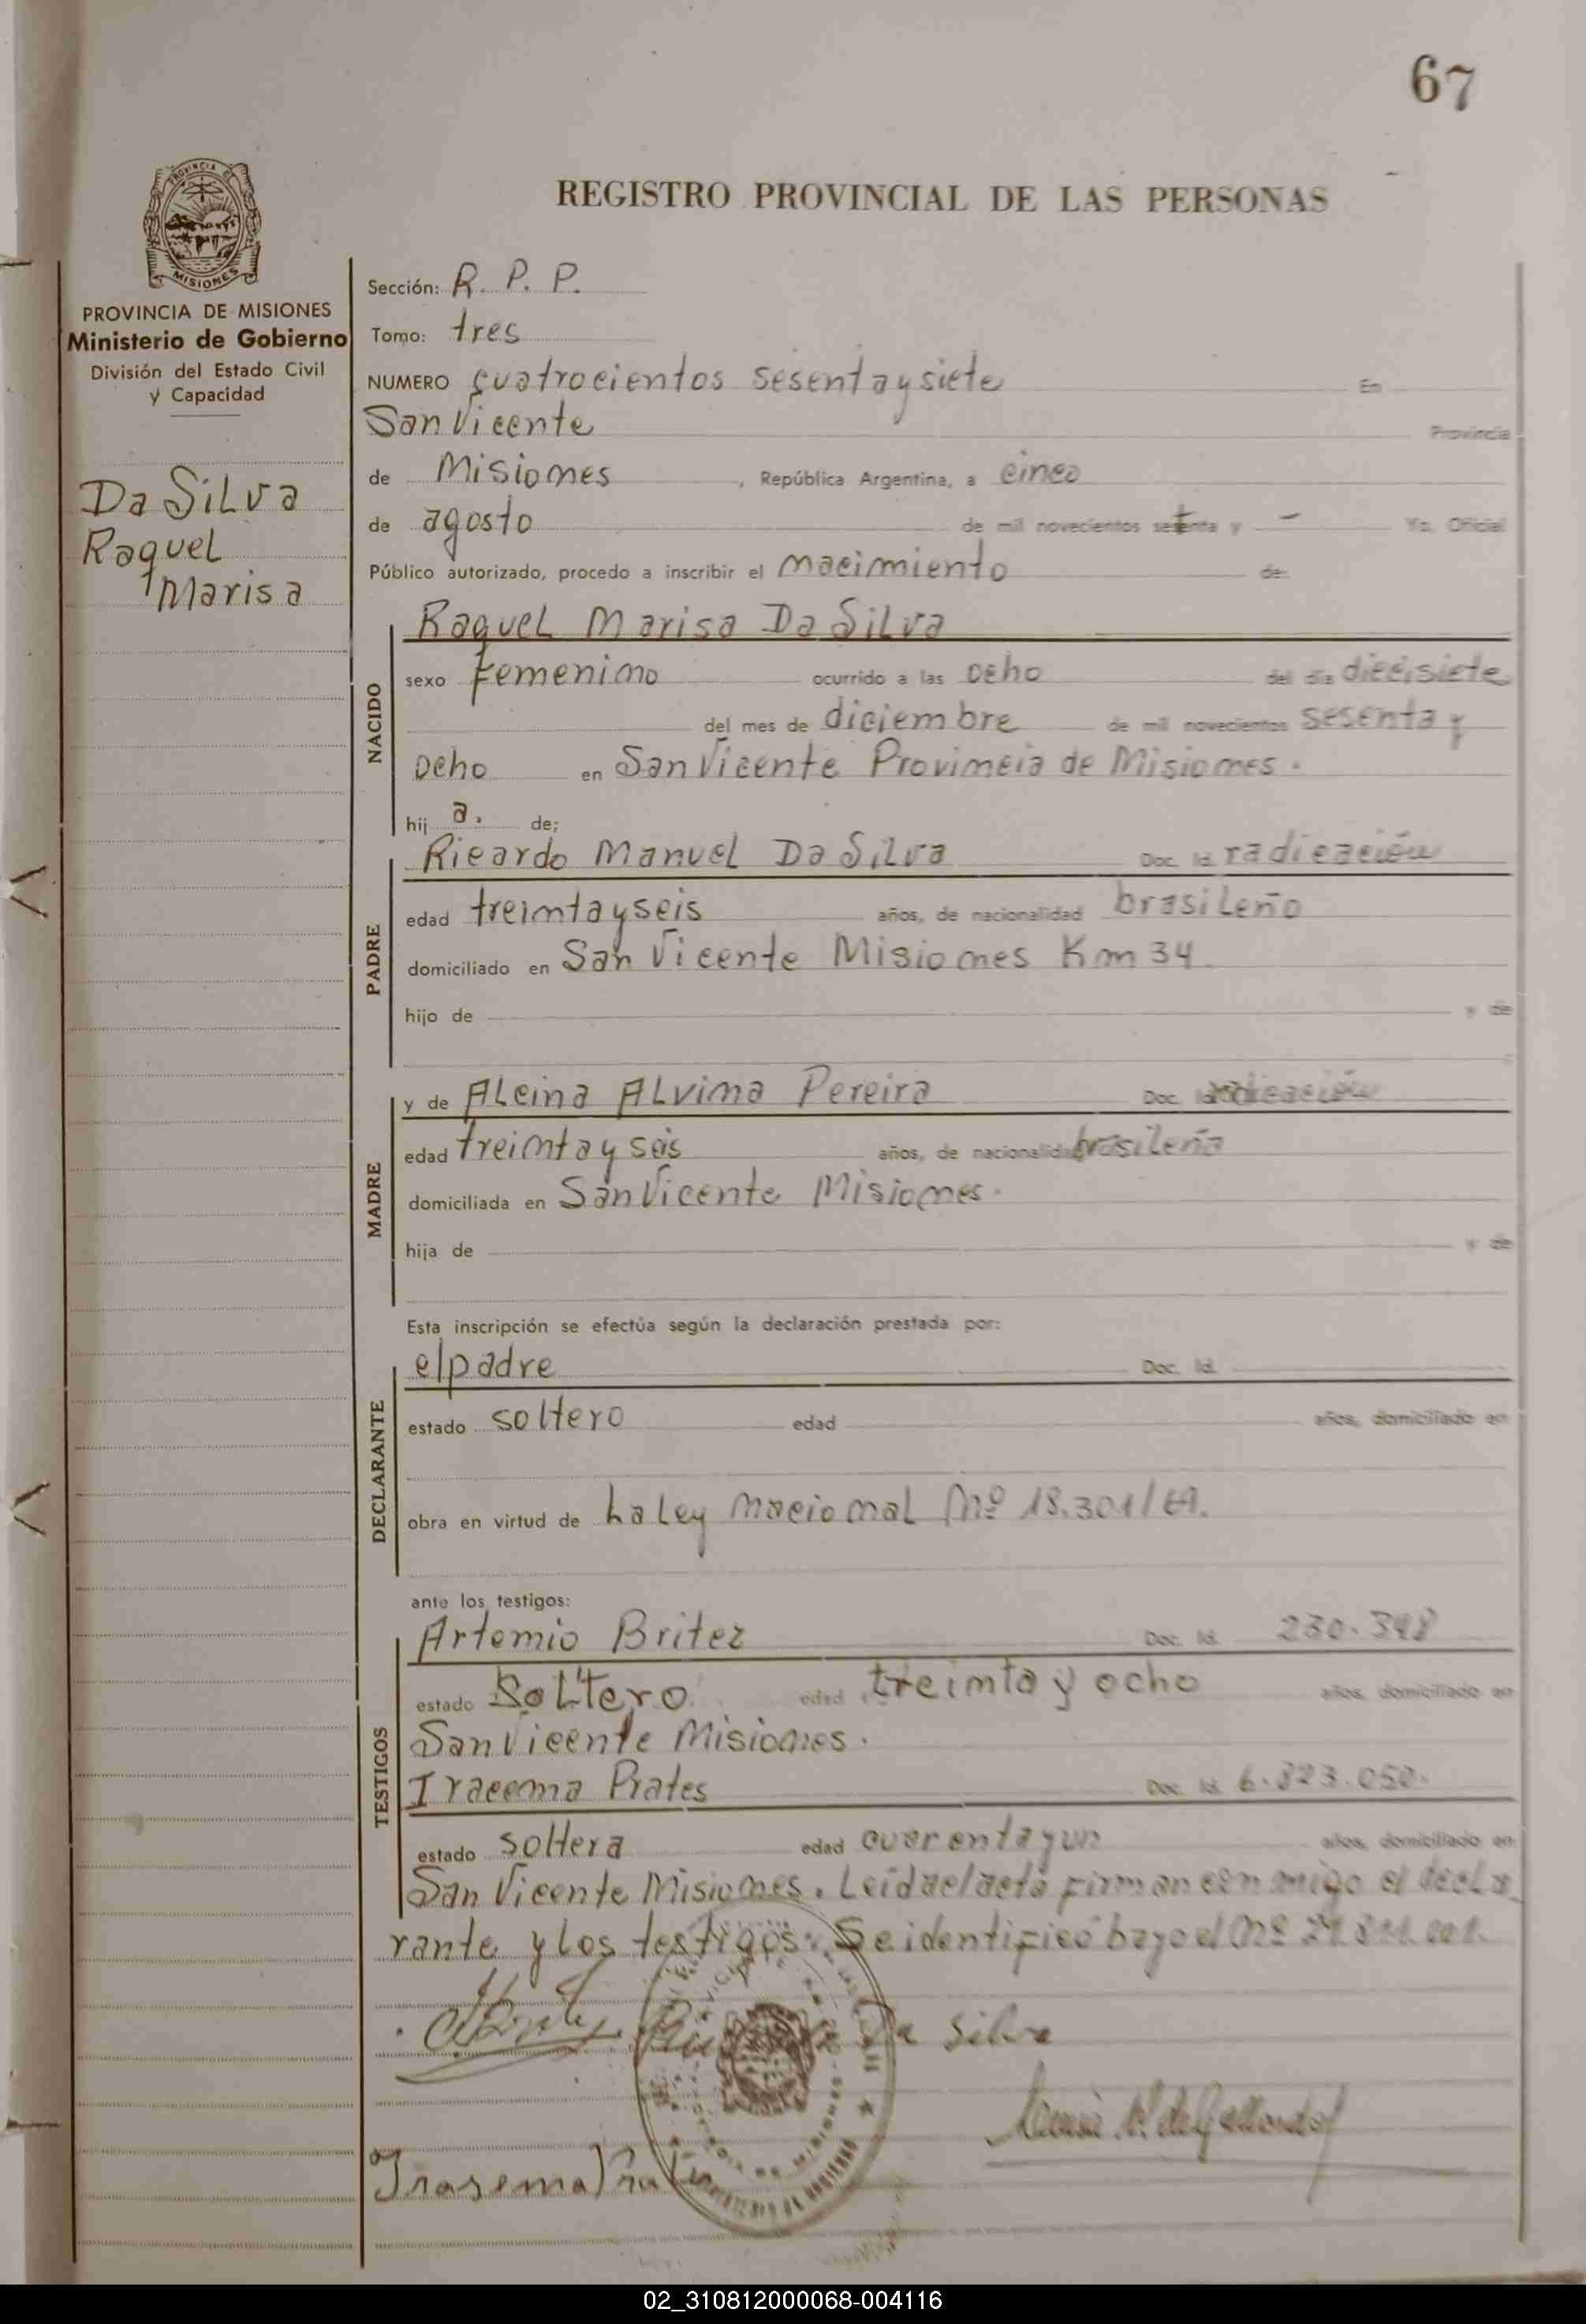 67
REGISTRO PROVINCIAL DE LAS PERSONAS
PROVINCIA DE MISIONES
PROVINCIA DE MISIONES
Ministerio de Gobierno
División del Estado Civil
y Capacidad
Da Silva
Raquel
Marisa
Sección: R. P. P.
Tomo: tres
NUMERO cuatrocientos sesenta y siete En
San Vicente Provincia
de Misiones, República Argentina, a cinco
de agosto de mil novecientos setenta y - Yo, Oficial
Público autorizado, procedo a inscribir el nacimiento de:
NACIDO
Raquel Marisa Da Silva
sexo femenino ocurrido a las ocho del día diecisiete
del mes de diciembre de mil novecientos sesenta y
ocho en San Vicente Provincia de Misiones.
hij a. de;
PADRE
Ricardo Manuel Da Silva Doc. Id. radicación
edad treinta y seis años, de nacionalidad brasileño
domiciliado en San Vicente Misiones Km 34
hijo de y de
MADRE
y de Alcina Alvina Pereira Doc. Id. radicación
edad treinta y seis años, de nacionalidad brasileña
domiciliada en San Vicente Misiones.
hija de y de
Esta inscripción se efectúa según la declaración prestada por:
DECLARANTE
el padre Doc. Id.
estado soltero edad años, domiciliado en
obra en virtud de La Ley nacional Nº 18.301/69.
ante los testigos:
TESTIGOS
Artemio Britez Doc. Id. 230.348
estado Soltero edad treinta y ocho años, domiciliado en
San Vicente Misiones.
Iracema Prates Doc. Id. 6.823.050.
estado soltera edad cuarenta y un años, domiciliado en
San Vicente Misiones. Leida el acta firman conmigo el decla
rante y los testigos. Se identificó bajo el Nº
Da Silva
de Gallardo
Irasema
02_310812000068-004116